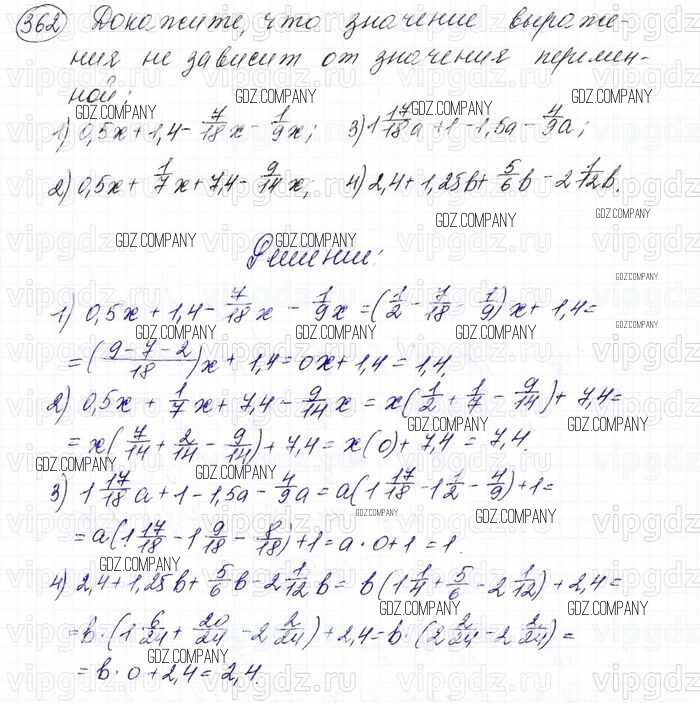 362) Докажите, что значение выраже-
ния не зависит от значения перемен-
ной:
1) 0,5x + 1,4 - 7/18 x - 1/9 x; 3) 1 17/18 a + 1 - 1,5a - 4/9 a;
2) 0,5x + 1/7 x + 7,4 - 9/14 x; 4) 2,4 + 1,25b + 5/6 b - 2 1/12 b.
Решение:
1) 0,5x + 1,4 - 7/18 x - 1/9 x = (1/2 - 7/18 - 1/9)x + 1,4 =
= (9-7-2/18)x + 1,4 = 0x + 1,4 = 1,4.
2) 0,5x + 1/7 x + 7,4 - 9/14 x = x(1/2 + 1/7 - 9/14) + 7,4 =
= x(7/14 + 2/14 - 9/14) + 7,4 = x(0) + 7,4 = 7,4.
3) 1 17/18 a + 1 - 1,5a - 4/9 a = a(1 17/18 - 1 1/2 - 4/9) + 1 =
= a(1 17/18 - 1 9/18 - 8/18) + 1 = a · 0 + 1 = 1.
4) 2,4 + 1,25b + 5/6 b - 2 1/12 b = b(1 1/4 + 5/6 - 2 1/12) + 2,4 =
= b · (1 6/24 + 20/24 - 2 2/24) + 2,4 = b · (2 2/24 - 2 2/24) =
= b · 0 + 2,4 = 2,4.
GDZ.COMPANY
vipgdz.ru